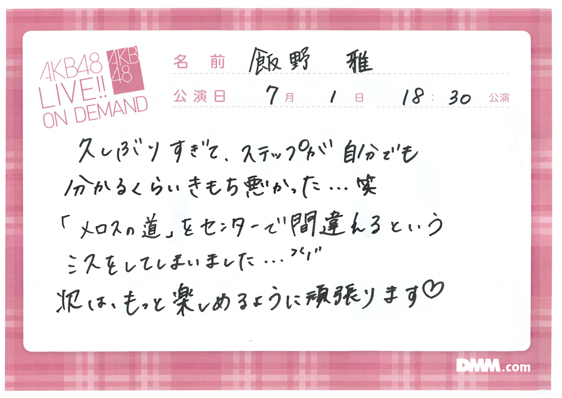 AKB48
LIVE!!
ON DEMAND
AKB
48
名 前 飯野 雅
公演日 7月 1日 18:30 公演
久しぶりすぎて、ステップが自分でも
分かるくらいきもち悪かった...笑
「メロスの道」をセンターで間違えるという
ミスをしてしまいました...
次は、もっと楽しめるように頑張ります♡
DMM.com